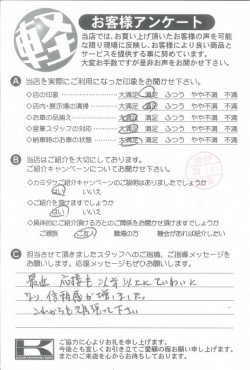 軽
お客様アンケート
当店では、お買い上げ頂いたお客様の声を可能
な限り現場に反映し、お客様により良い商品と
サービスを提供する事に努めています。
大変お手数ですが是非お声をお聞かせ下さい。
A 当店を実際にご利用になった印象をお聞かせ下さい。
◇店の印象 大満足 満足 ふつう やや不満 不満
◇店内・展示場の清掃 大満足 満足 ふつう やや不満 不満
◇お車の品揃え 大満足 満足 ふつう やや不満 不満
◇営業スタッフの対応 大満足 満足 ふつう やや不満 不満
◇納車時のお車の状態 大満足 満足 ふつう やや不満 不満
B 当店はご紹介を大切にしております。
ご紹介キャンペーンについてお聞かせ下さい。
◇カミタケご紹介キャンペーンのご説明はありましたでしょうか
はい いいえ
◇ご紹介を頂けますでしょうか
はい いいえ
◇具体的にご紹介頂ける方とのご関係をお聞かせ頂けますでしょうか
ご親戚 ご友人 職場の方 機会があれば紹介したい
C 担当させて頂きましたスタッフへのご指摘、ご指導メッセージを
お願いします。応援メッセージもぜひお願いします。
最近 応接も以前以上にていねいに
なり、信頼感が増しました。
これからも頑張って下さい
K
ご協力に心よりお礼を申し上げます。
今後とも宜しくお引き立てご愛顧の程お願い申し上げます。
またのご来店を心からお待ちしております。